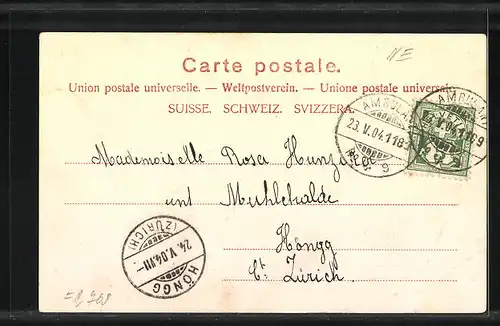 Carte postale.
Union postale universelle. — Weltpostverein. — Unione postale universale
SUISSE. SCHWEIZ. SVIZZERA.
AMBULANT
23.V.04.118
9
AMBULANT
23.V.04.118
9
Mademoiselle Rosa Hunziker
unt Muhlehalde
Höngg
Ct. Zürich
HÖNGG
24.V.04.VII-
(ZÜRICH)